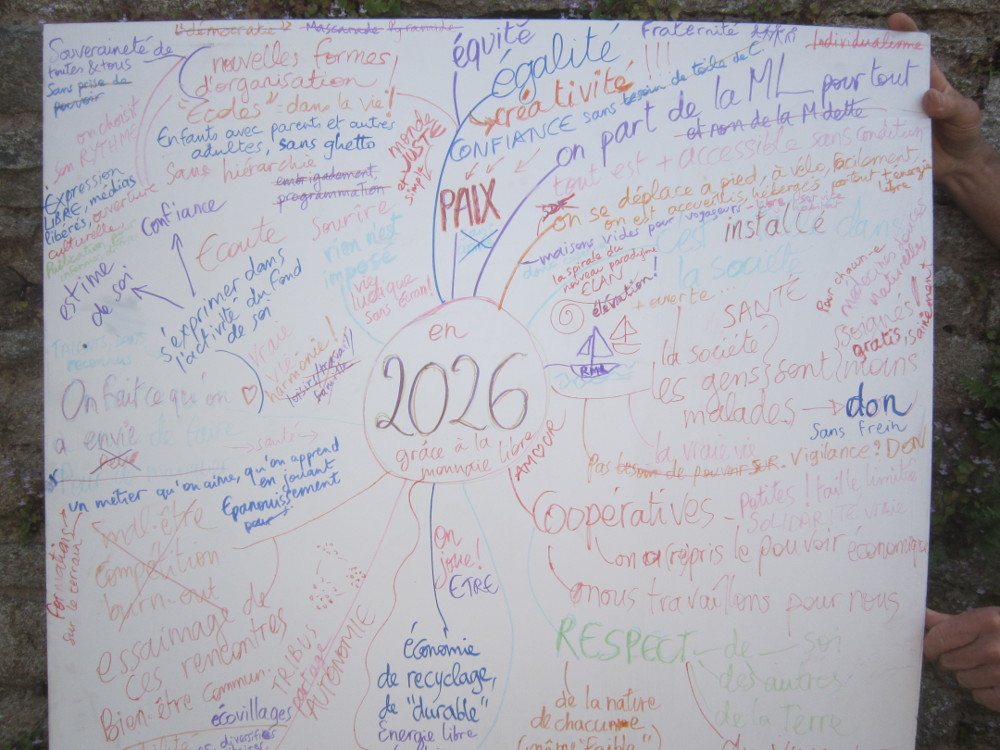 "démocratie"
Pyramide
équité
égalité
Fraternité
!!!
Individualisme
Souveraineté de
toutes & tous
sans prise de
pouvoir
nouvelles formes
d'organisation !
"Ecoles" dans la vie!
Enfants avec parents et autres
adultes, sans ghetto
Sans hiérarchie
embrigadement,
programmation
on choisit
son RYTHME
créativité
CONFIANCE sans besoin de
on part de la ML pour tout
et non de la M dette
tout est + accessible sans condition
PAIX
monde
simple
on se déplace à pied, à vélo, facilement,
on est accueillis, hébergés partout + énergie
libre
maisons vides pour voyageurs
Expression
LIBRE, médias
libérés, ouverture
culturelle
Confiance
estime
de soi
Ecoute Sourire
rien n'est
imposé
vie
ludique
sans
écran!
s'exprimer dans
l'activité du fond
de soi
Vraie
vie
harmonie!
loisir/travail/
la spirale du
nouveau paradigme
ELAN
élévation!
RML
c'est installé dans
la société
+ ouverte ...
SANTÉ
la société
les gens sont moins
malades → don
Sans frein
Pour chacun-e
médecines douces
naturelles
Soignés
gratis, sainement
la vraie vie
Pas besoin de pouvoir . Vigilance? DON
en
2026
grâce à la
monnaie libre
AMOUR
On fait ce qu'on
a envie de faire
santé
un métier qu'on aime, qu'on apprend
en jouant
Epanouissement
pour
Formations
sur le terrain
mal-être
compétition
burn-out
essaimage de
ces rencontres
Bien-être commun.
écovillages
TRIBUS
partage
AUTONOMIE
On
joue!
ETRE
économie
de recyclage,
de "durable"
Energie libre
Coopératives - Petites! taille limitée
SOLIDARITÉ vraie
on a repris le pouvoir économique
nous travaillons pour nous
RESPECT - de soi
des autres
de la Terre
de la nature
de chacun
(même "faible"